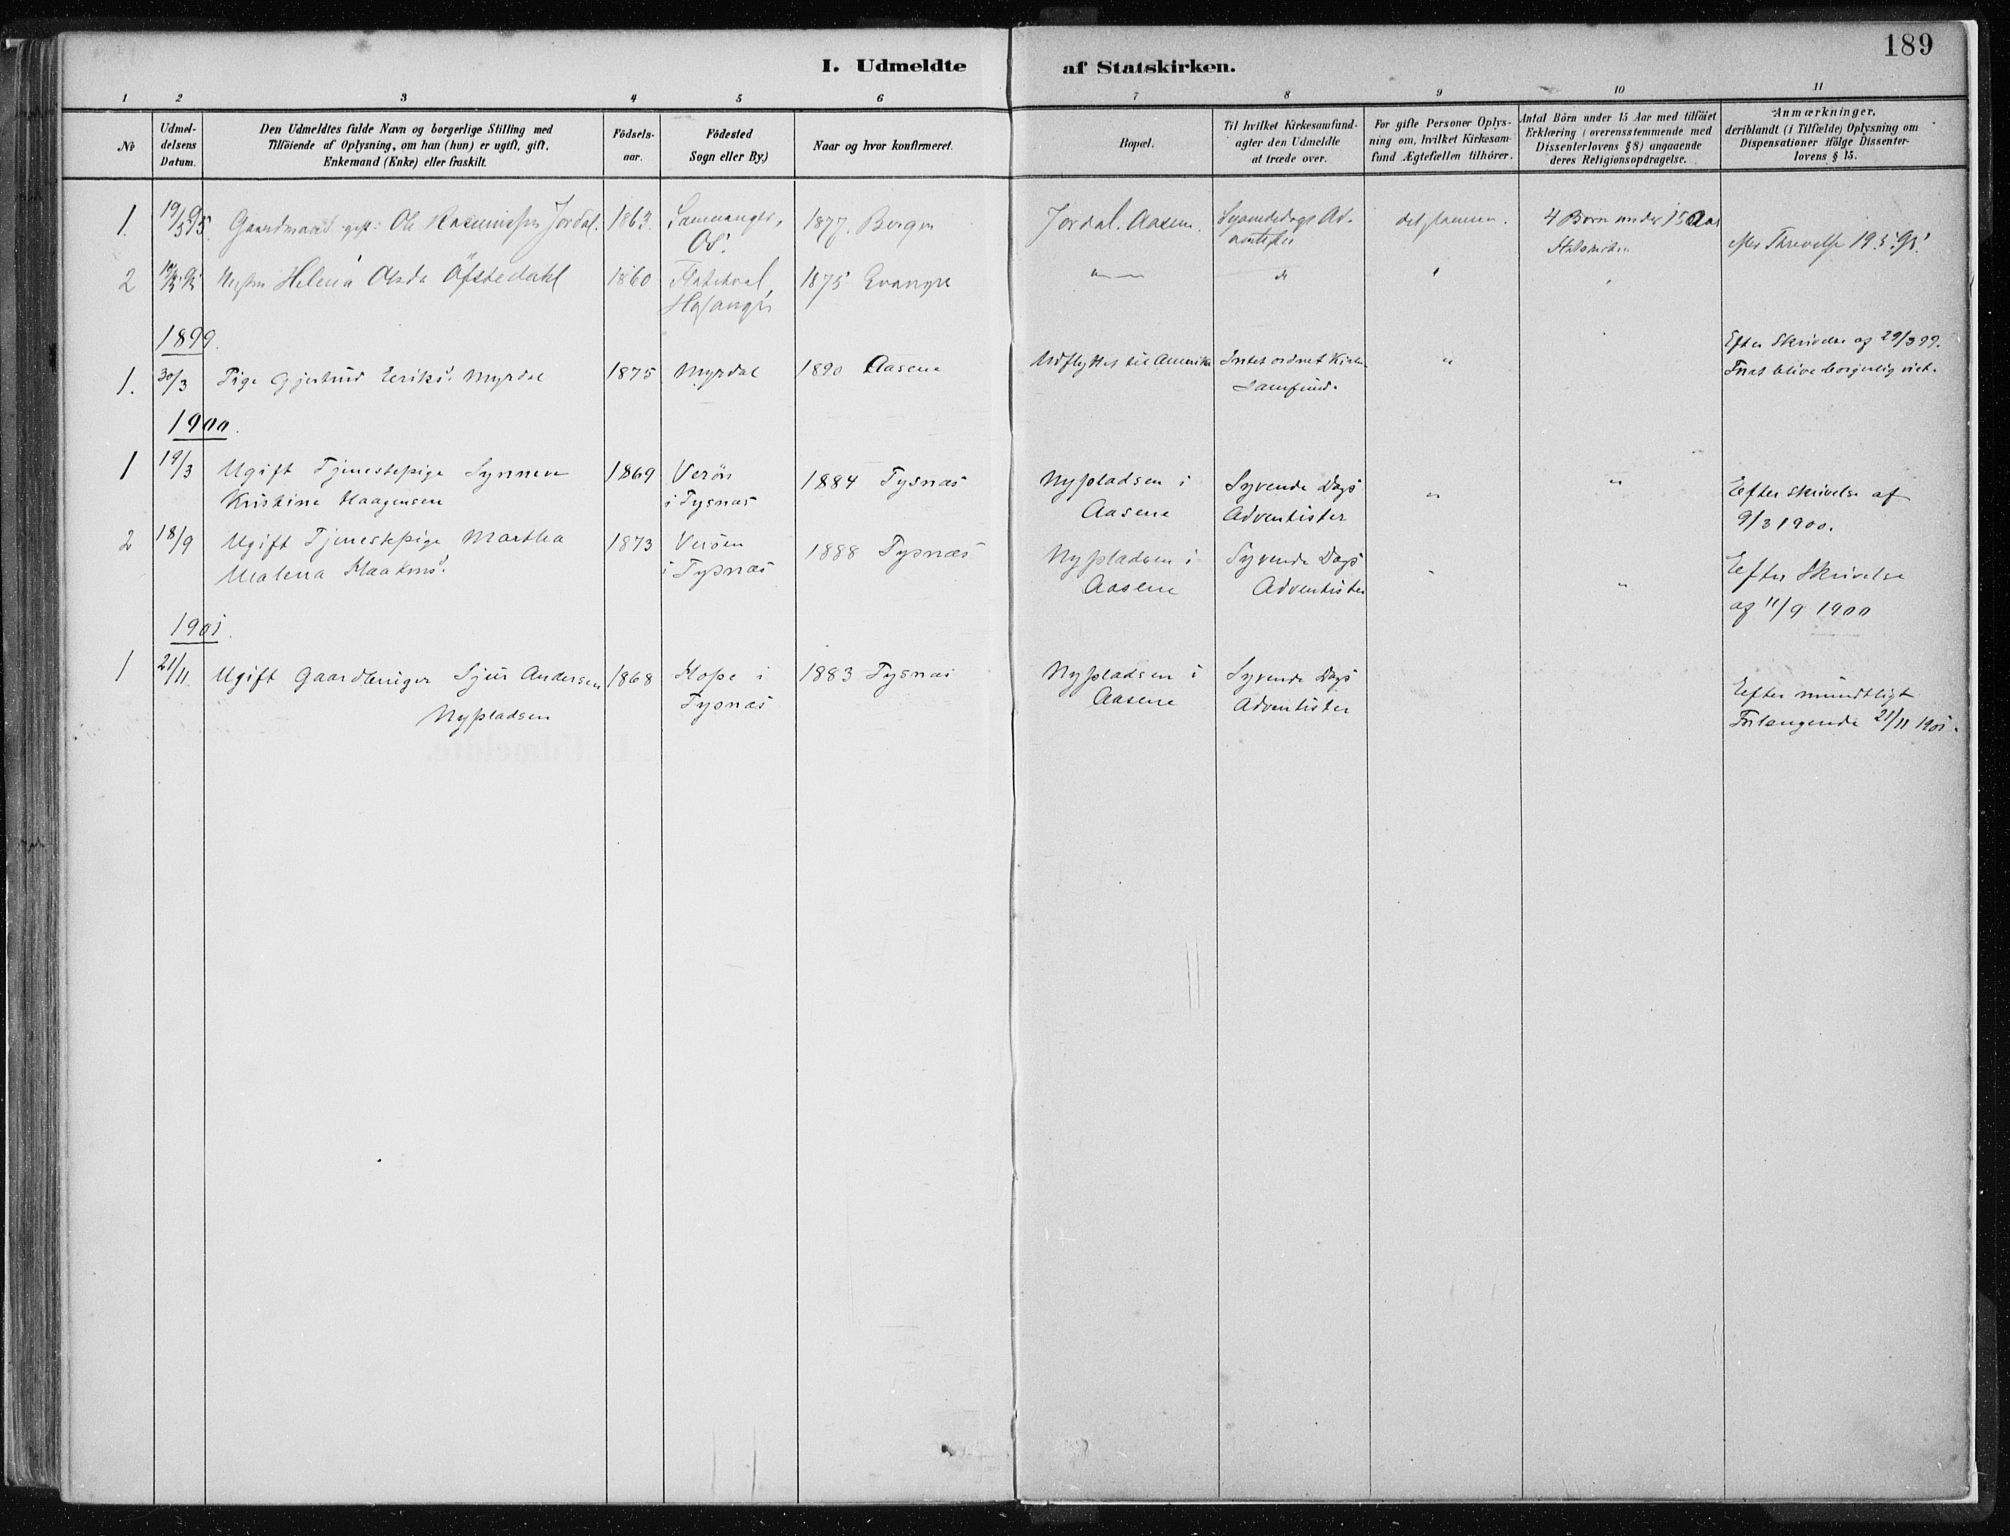 189
I. Udmeldte af Statskirken.
1 2 3 4 5 6 7 8 9 10 11
No
Udmel-
delsens
Datum.
Den Udmeldtes fulde Navn og borgerlige Stilling med
Tilföiende af Oplysning, om han (hun) er ugift, gift,
Enkemand (Enke) eller fraskilt.
Födsels-
aar.
Födested
Sogn eller By.)
Naar og hvor konfirmeret.
Bopæl.
Til hvilket Kirkesamfund
agter den Udmeldte
at træde over.
For gifte Personer Oplys-
ning om, hvilket Kirkesam-
fund Ægtefællen tilhörer.
Antal Börn under 15 Aar med tilföiet
Erklæring (overensstemmende med
Dissenterlovens § 8) angaaende
deres Religionsopdragelse.
Anmærkninger,
deriblandt (i Tilfælde) Oplysning om
Dispensationer ifölge Dissenter-
lovens § 15.
1. 19/5 95. Gaardmand gift: Ole Rasmussen Jordal. 1863. Samnanger, 1877. Bergen Jordal. Aasene. Syvendedags Ad- det samme. 4 Børn under 15 Aar
Os. ventister Statskirken 19.5.95.
2 Helena Olsda Öfstedahl 1860 1875 Evanger
Hosanger
1899.
Efter Skrivelse af 29/3 99.
1. 30/3 Pige Gjertrud Eriksd. Myrdal 1875 Myrdal 1890 Aasene Udflyttet til Amerika Intet ordnet Kirke- " blive borgerlig viet.
samfund.
1900.
1 19/3 Ugift Tjenestepige Synneve 1869 Verön 1884 Tysnæs Nypladsen i Syvende Dags " " Efter skrivelse af
Kristine Haagensen i Tysnæs Aasene Adventister 9/3 1900.
2 18/9 Ugift Tjenestepige Martha 1873 Veröen 1888 Tysnæs Nypladsen i Syvende Dags " " Efter Skrivelse
Malena Haakons. i Tysnæs Aasene Adventister af 11/9 1900
1901.
1 21/11 Ugift Gaardbruger Sjur Andersen 1868 Hope i 1883 Tysnæs Nypladsen i Syvende Dags Efter mundtligt
Nypladsen Tysnæs Aasene Adventister Forlangende 21/11 1901.